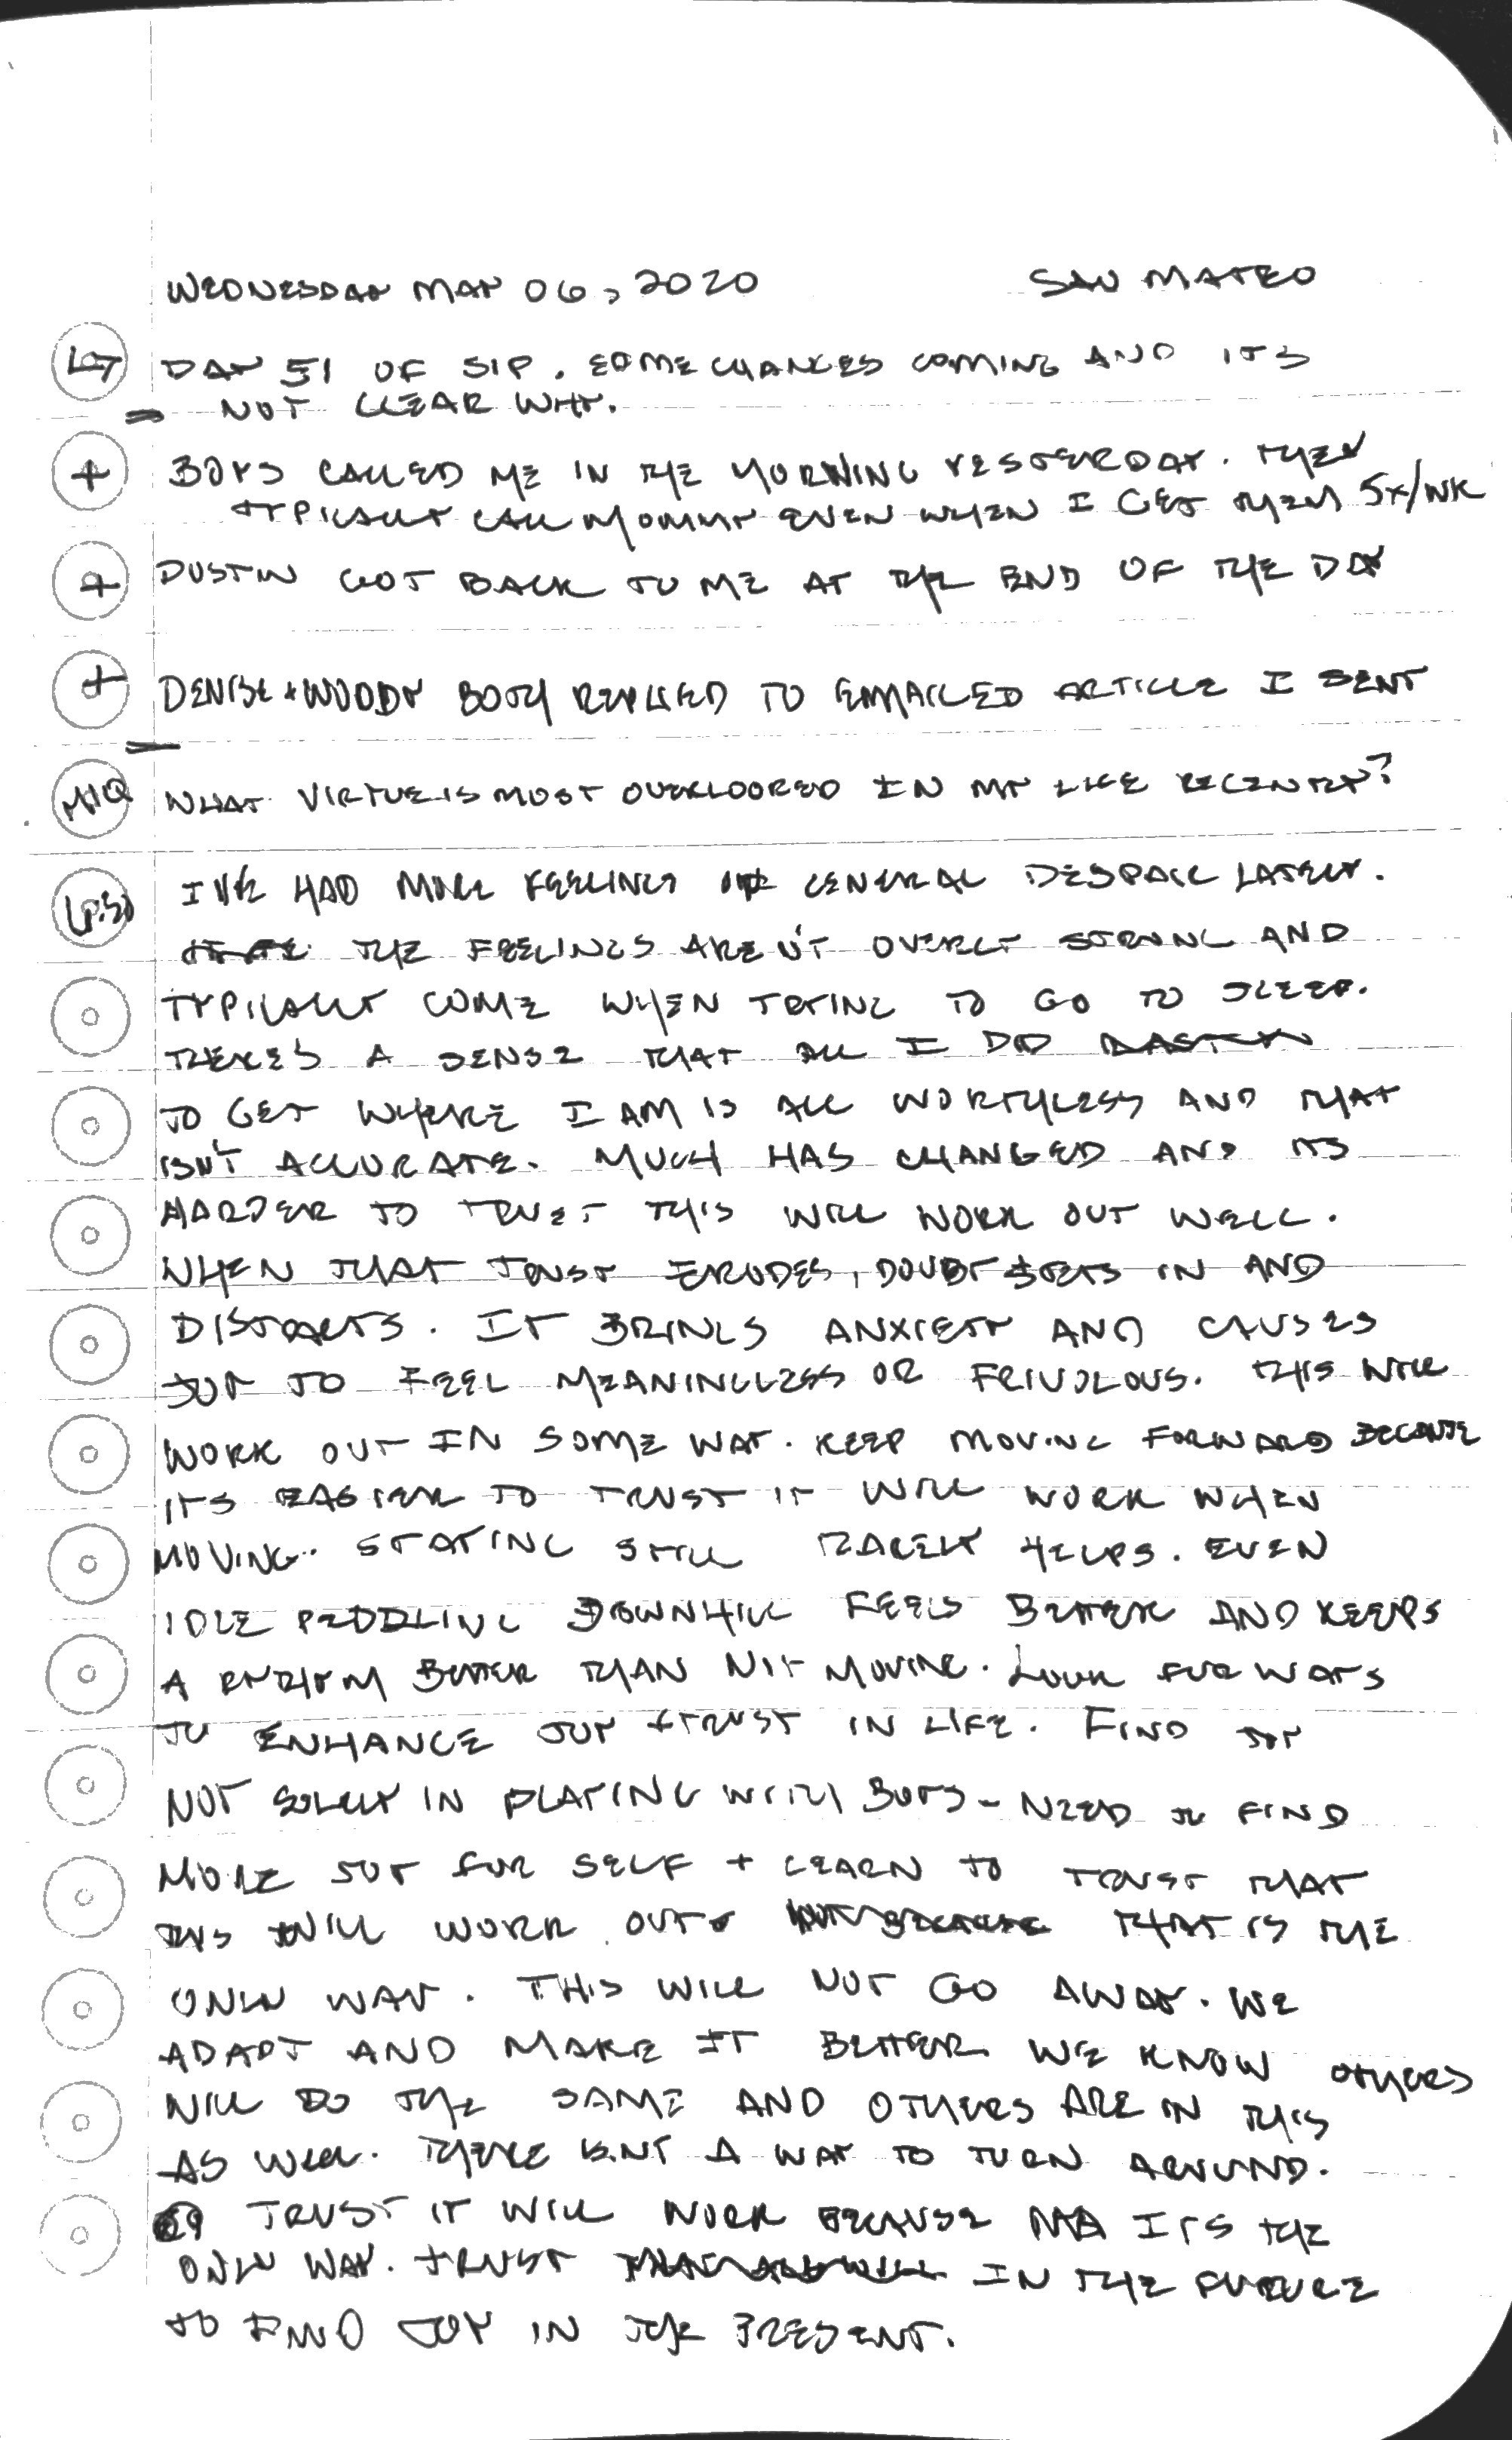 WEDNESDAY MAY 06, 2020 SAN MATEO
DAY 51 OF SIP. SOME CHANGES COMING AND ITS
NOT CLEAR WHY.
+ BOYS CALLED ME IN THE MORNING YESTERDAY. THEY
TYPICALLY CALL MOMMY EVEN WHEN I GET THEM 5X/WK
+ DUSTIN GOT BACK TO ME AT THE END OF THE DAY
+ DENISE + WOODY BOTH REPLIED TO EMAILED ARTICLE I SENT
MIQ WHAT VIRTUE IS MOST OVERLOOKED IN MY LIFE RECENTLY?
I'VE HAD MORE FEELINGS OF GENERAL DESPAIR LATELY.
THE FEELINGS AREN'T OVERLY STRONG AND
TYPICALLY COME WHEN TRYING TO GO TO SLEEP.
THERE'S A SENSE THAT ALL I DID
TO GET WHERE I AM IS ALL WORTHLESS AND THAT
ISN'T ACCURATE. MUCH HAS CHANGED AND ITS
HARDER TO TRUST THIS WILL WORK OUT WELL.
WHEN THAT TRUST ERODES, DOUBT SETS IN AND
DISTRACTS. IT BRINGS ANXIETY AND CAUSES
JOY TO FEEL MEANINGLESS OR FRIVOLOUS. THIS WILL
WORK OUT IN SOME WAY. KEEP MOVING FORWARD BECAUSE
ITS EASIER TO TRUST IT WILL WORK WHEN
MOVING. STAYING STILL RARELY HELPS. EVEN
IDLE PEDDLING DOWNHILL FEELS BETTER AND KEEPS
A RHYTHM BETTER THAN NOT MOVING. LOOK FOR WAYS
TO ENHANCE JOY + TRUST IN LIFE. FIND JOY
NOT SOLELY IN PLAYING WITH BOYS - NEED TO FIND
MORE JOY FOR SELF + LEARN TO TRUST THAT
THIS WILL WORK OUT. THAT IS THE
ONLY WAY. THIS WILL NOT GO AWAY. WE
ADAPT AND MAKE IT BETTER. WE KNOW OTHERS
WILL DO THE SAME AND OTHERS ARE IN THIS
AS WELL. THERE ISNT A WAY TO TURN AROUND.
TRUST IT WILL WORK BECAUSE ITS THE
ONLY WAY. TRUST IN THE FUTURE
TO FIND JOY IN THE PRESENT.